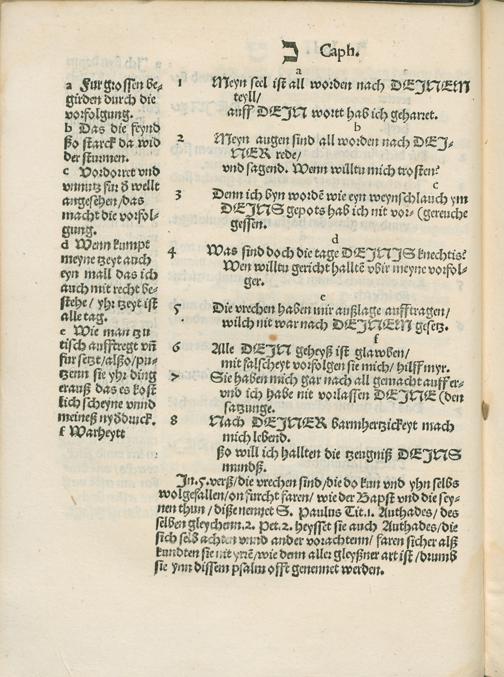 כ Caph.
a Fur grossen be-
girden durch die
vorfolgung.
b Das die feynd
ßo starck da wid
der sturmen.
c Vordorret vnd
vnnutz für d̄ wellt
angesehen/das
macht die vorfol-
gung.
d Wenn kumpt
meyne tzeyt auch
eyn mall das ich
auch mit recht be-
stehe/ yhr tzeyt ist
alle tag.
e Wie man tzu
tisch aufftregt vn̄
fur setzt/alßo/pu-
tzenn sie yhr ding
erauß das es kost
lich scheyne vnnd
meineß nyddruck.
f Warheytt
a
1 Meyn seel ist all worden nach DEJNEM
teyll/
auff DEJN wortt hab ich geharret.
b
2 Meyn augen sind all worden nach DEJ-
NER rede/
vnd sagend. Wenn willtu mich trosten?
c
3 Denn ich byn wordē wie eyn weynschlauch ym
DEJNS gepots hab ich nit vor- (gereuche
gessen.
d
4 Was sind doch die tage DEJNJS knechtis?
Wen willtu gericht halltē vbir meyne vorfol-
ger.
e
5 Die vrechen haben mir außlage aufftragen/
wilch nit war nach DEJNEM gesetz.
f
6 Alle DEJN geheyß ist glawben/
mit falscheyt vorfolgen sie mich/ hilff myr.
7 Sie haben mich gar nach all gemacht auff er-
vnd ich habe nit vorlassen DEJNE (den
satzunge.
8 Nach DEJNER barmhertzickeyt mach
mich lebend.
ßo will ich hallten die tzeugniß DEJNS
mundß.
In .5. verß/die vrechen sind/die do kun vnd yhn selbs
wolgefallen/on furcht faren/ wie der Bapst vnd die sey-
nen thun/ diße nennet S. Paulus Tit.1. Authades/des
selben gleychenn .2. Pet.2. heysset sie auch Authades/die
sich selb achten vnnd ander vorachtenn/ faren sicher alß
kundten sie nit yrrē/wie denn aller gleyßner art ist/drumb
sie ynn dissem psalm offt genennet werden.